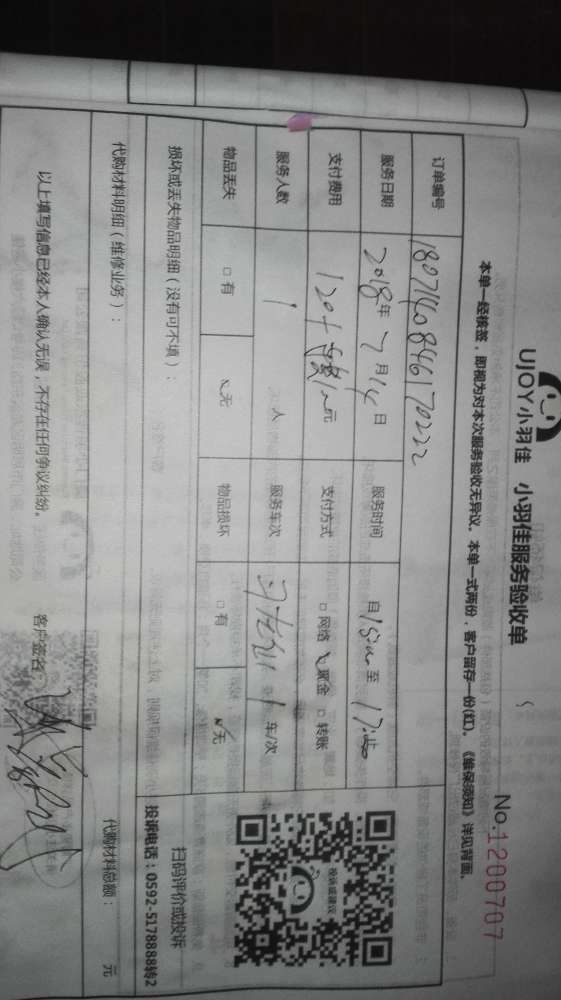 UJOY小羽佳 小羽佳服务验收单
No:1200707
本单一经核签，即视为对本次服务验收无异议。本单一式两份，客户留存一份(红)。《维保须知》详见背面。
订单编号 1807140846170222
服务日期 2018年7月14日 服务时间 自15:00至17:00
支付费用 120+ 元 支付方式 □网络 ☑现金 □转账
服务人数 1 人 服务车次 1 车/次
物品丢失 □有 ☑无 物品损坏 □有 ☑无
损坏或丢失物品明细（没有可不填）：
投诉或建议
扫码评价或投诉
投诉电话：0592-5178888转2
代购材料明细（维修业务）： 代购材料总额： 元
以上填写信息已经本人确认无误，不存在任何争议纠纷。 客户签名：